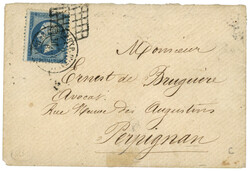 Monsieur
Ernest de Bruguère
Avocat
Rue Neuve des Augustins
Perpignan